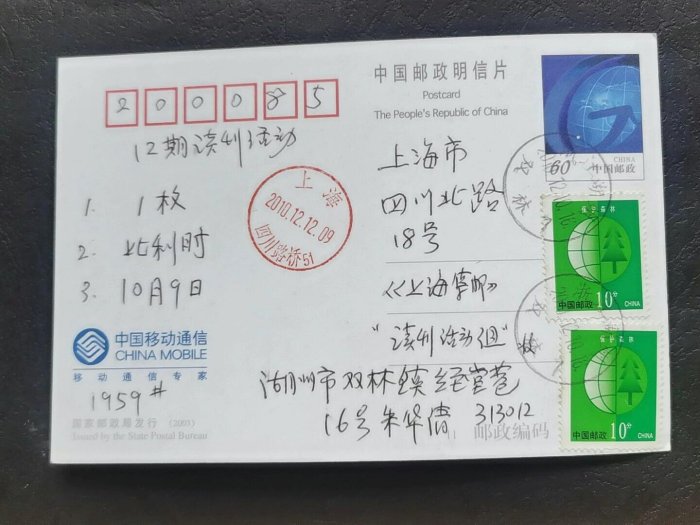 200085
12期读刊活动
1. 1枚
2. 比利时
3. 10月9日
中国移动通信
CHINA MOBILE
移动通信专家
1959#
国家邮政局发行 (2001)
Issued by the State Postal Bureau
上海
2010.12.12.09
四川路桥51
中国邮政明信片
Postcard
The People's Republic of China
60
CHINA
中国邮政
双林
上海市
四川北路
18号
《上海集邮》
"读刊活动组" 收
湖州市双林镇经官苍
16号朱华清 313012
邮政编码
保护森林
中国邮政 10分 CHINA
保护森林
中国邮政 10分 CHINA